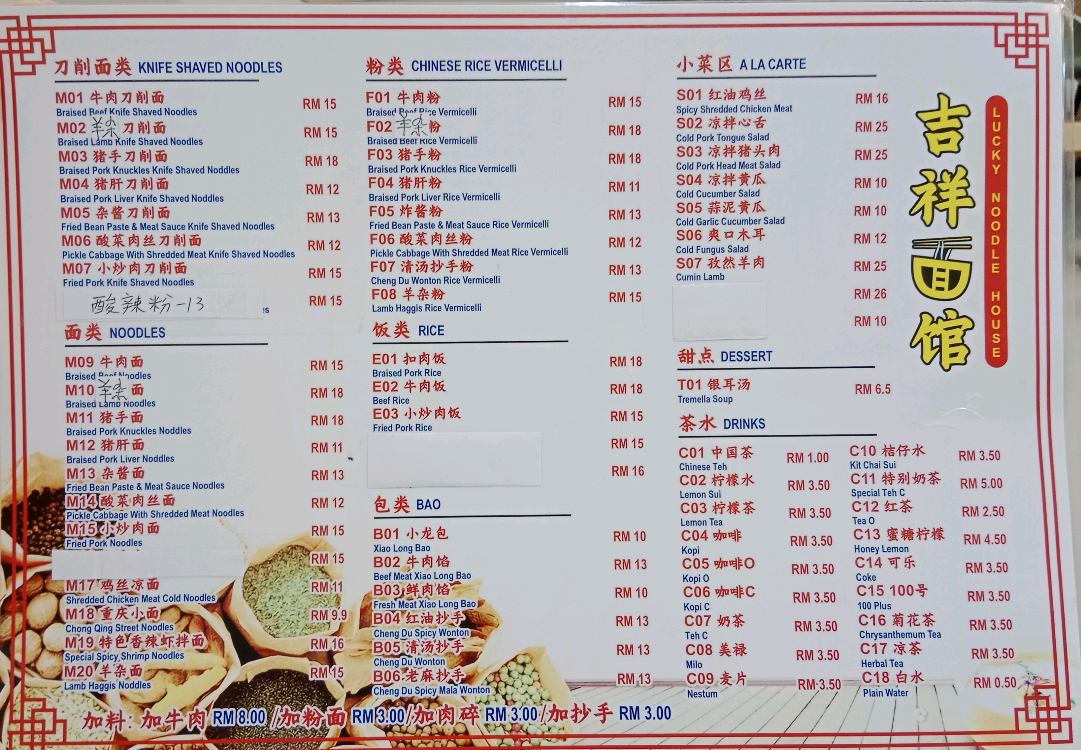 刀削面类 KNIFE SHAVED NOODLES
M01 牛肉刀削面 RM 15
Braised Beef Knife Shaved Noodles
M02 羊杂刀削面 RM 15
Braised Lamb Knife Shaved Noodles
M03 猪手刀削面 RM 18
Braised Pork Knuckles Knife Shaved Noddles
M04 猪肝刀削面 RM 12
Braised Pork Liver Knife Shaved Noddles
M05 杂酱刀削面 RM 13
Fried Bean Paste & Meat Sauce Knife Shaved Noodles
M06 酸菜肉丝刀削面 RM 12
Pickle Cabbage With Shredded Meat Knife Shaved Noodles
M07 小炒肉刀削面 RM 15
Fried Pork Knife Shaved Noodles
酸辣粉-13 RM 15
面类 NOODLES
M09 牛肉面 RM 15
Braised Beef Noodles
M10 羊杂面 RM 18
Braised Lamb Noodles
M11 猪手面 RM 18
Braised Pork Knuckles Noddles
M12 猪肝面 RM 11
Braised Pork Liver Noddles
M13 杂酱面 RM 13
Fried Bean Paste & Meat Sauce Noodles
M14 酸菜肉丝面 RM 12
Pickle Cabbage With Shredded Meat Noodles
M15 小炒肉面 RM 15
Fried Pork Noodles
RM 15
M17 鸡丝凉面 RM 11
Shredded Chicken Meat Cold Noodles
M18 重庆小面 RM 9.9
Chong Qing Street Noodles
M19 特色香辣虾拌面 RM 16
Special Spicy Shrimp Noodles
M20 羊杂面 RM 15
Lamb Haggis Noodles
粉类 CHINESE RICE VERMICELLI
F01 牛肉粉 RM 15
Braised Beef Rice Vermicelli
F02 羊杂粉 RM 18
Braised Beef Rice Vermicelli
F03 猪手粉 RM 18
Braised Pork Knuckles Rice Vermicelli
F04 猪肝粉 RM 11
Braised Pork Liver Rice Vermicelli
F05 炸酱粉 RM 13
Fried Bean Paste & Meat Sauce Rice Vermicelli
F06 酸菜肉丝粉 RM 12
Pickle Cabbage With Shredded Meat Rice Vermicelli
F07 清汤抄手粉 RM 13
Cheng Du Wonton Rice Vermicelli
F08 羊杂粉 RM 15
Lamb Haggis Rice Vermicelli
饭类 RICE
E01 扣肉饭 RM 18
Braised Pork Rice
E02 牛肉饭 RM 18
Beef Rice
E03 小炒肉饭 RM 15
Fried Pork Rice
RM 15
RM 16
包类 BAO
B01 小龙包 RM 10
Xiao Long Bao
B02 牛肉馅 RM 13
Beef Meat Xiao Long Bao
B03 鲜肉馅 RM 10
Fresh Meat Xiao Long Bao
B04 红油抄手 RM 13
Cheng Du Spicy Wonton
B05 清汤抄手 RM 13
Cheng Du Wonton
B06 老麻抄手 RM 13
Cheng Du Spicy Mala Wonton
小菜区 A LA CARTE
S01 红油鸡丝 RM 16
Spicy Shredded Chicken Meat
S02 凉拌心舌 RM 25
Cold Pork Tongue Salad
S03 凉拌猪头肉 RM 25
Cold Pork Head Meat Salad
S04 凉拌黄瓜 RM 10
Cold Cucumber Salad
S05 蒜泥黄瓜 RM 10
Cold Garlic Cucumber Salad
S06 爽口木耳 RM 12
Cold Fungus Salad
S07 孜然羊肉 RM 25
Cumin Lamb
RM 26
RM 10
甜点 DESSERT
T01 银耳汤 RM 6.5
Tremella Soup
茶水 DRINKS
C01 中国茶 RM 1.00
Chinese Teh
C02 柠檬水 RM 3.50
Lemon Sui
C03 柠檬茶 RM 3.50
Lemon Tea
C04 咖啡 RM 3.50
Kopi
C05 咖啡O RM 3.50
Kopi O
C06 咖啡C RM 3.50
Kopi C
C07 奶茶 RM 3.50
Teh C
C08 美禄 RM 3.50
Milo
C09 麦片 RM 3.50
Nestum
C10 桔仔水 RM 3.50
Kit Chai Sui
C11 特别奶茶 RM 5.00
Special Teh C
C12 红茶 RM 2.50
Tea O
C13 蜜糖柠檬 RM 4.50
Honey Lemon
C14 可乐 RM 3.50
Coke
C15 100号 RM 3.50
100 Plus
C16 菊花茶 RM 3.50
Chrysanthemum Tea
C17 凉茶 RM 3.50
Herbal Tea
C18 白水 RM 0.50
Plain Water
吉祥面馆
LUCKY NOODLE HOUSE
加料: 加牛肉 RM 8.00 /加粉面 RM 3.00 /加肉碎 RM 3.00 /加抄手 RM 3.00